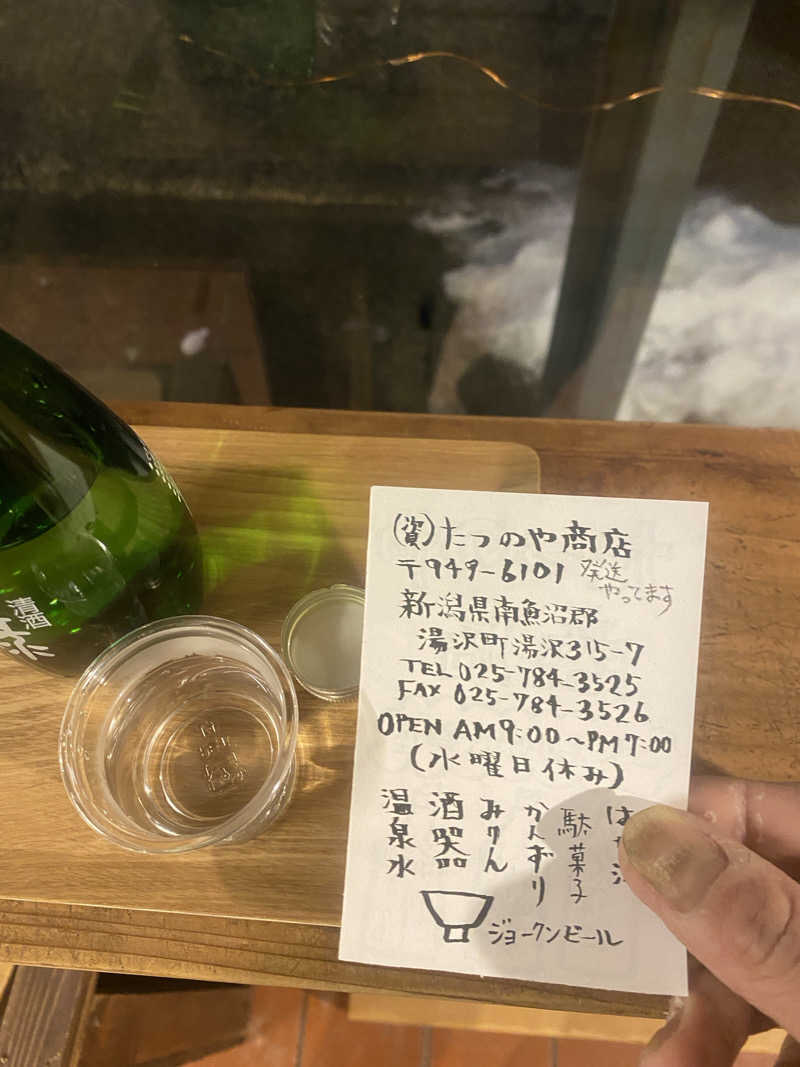 (資)たつのや商店
〒949-6101 発送
やってます
新潟県南魚沼郡
湯沢町湯沢315-7
TEL 025-784-3525
FAX 025-784-3526
OPEN AM9:00～PM7:00
(水曜日休み)
駄菓子
かんずり
みりん
酒器
温泉水
ジョークンビール
清酒